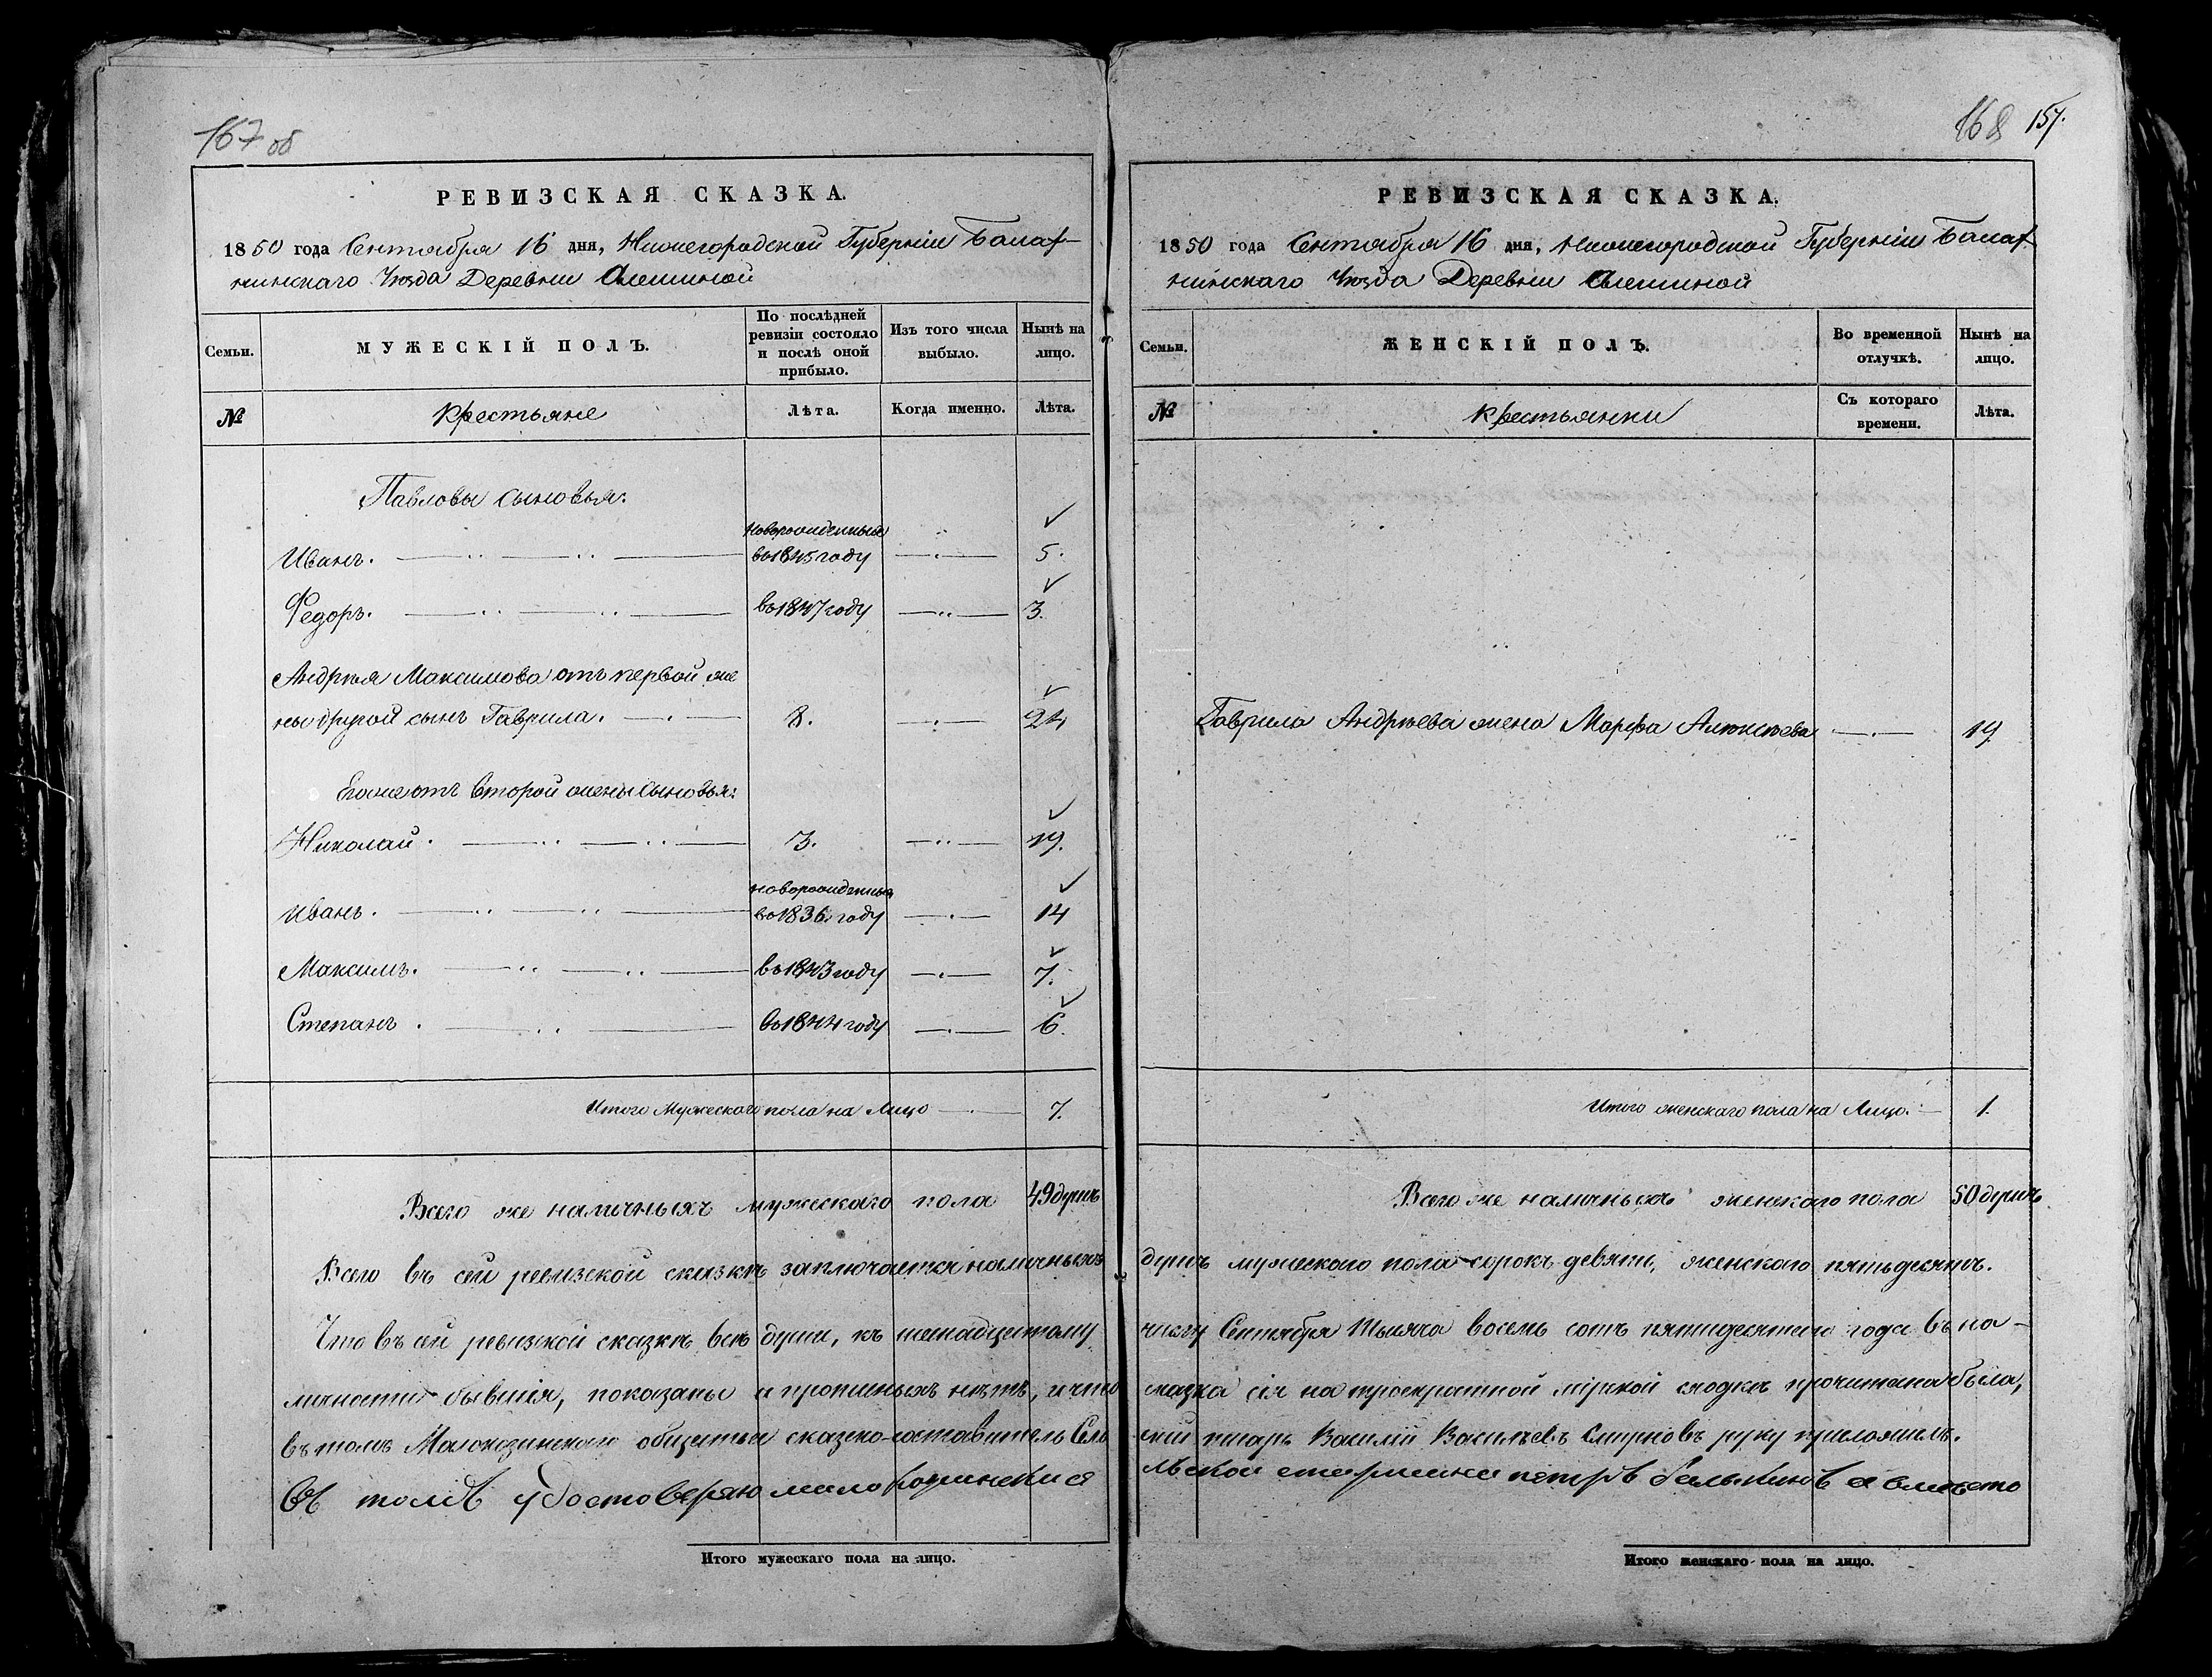 167 об
РЕВИЗСКАЯ СКАЗКА.
1850 года Сентября 16 дня, Нижегородской Губерніи Балах-
нинскаго Уѣзда Деревни Алешиной
Семьи.
МУЖЕСКІЙ ПОЛЪ.
По послѣдней ревизіи состояло и послѣ оной прибыло.
Изъ того числа выбыло.
Нынѣ на лицо.
№
Крестьяне
Лѣта.
Когда именно.
Лѣта.
Павловы сыновья:
Иванъ. новорожденный во 1845 году 5.
Федоръ. во 1847 году 3.
Андрѣя Максимова отъ первой же
ны другой сынъ Гаврила. 8. 24
Егоже отъ второй жены сыновья:
Николай. 3. 19.
Иванъ. новорожденный во 1836 году 14
Максимъ. во 1843 году 7.
Степанъ. во 1844 году 6.
Итого Мужескаго пола на Лицо 7.
Всего же наличныхъ мужескаго пола 49 душъ
Всего въ сей ревизской сказкѣ заключается наличныхъ
Что въ сей ревизской сказкѣ всѣ души, къ шестнадцатому
личности бывшія, показаны и прописныхъ нѣтъ, и что
въ томъ Малокозинскаго общества сказко-составитель Сель
Въ томъ удостоверяю малокозинскиѧ
Итого мужескаго пола на лицо.
168 157.
РЕВИЗСКАЯ СКАЗКА.
1850 года Сентября 16 дня, Нижегородской Губерніи Балах-
нинскаго Уѣзда Деревни Алешиной
Семьи.
ЖЕНСКІЙ ПОЛЪ.
Во временной отлучкѣ.
Нынѣ на лицо.
№
Крестьянки
Съ котораго времени.
Лѣта.
Гаврила Андрѣева жена Марфа Алексѣева 19.
Итого женскаго пола на Лицо. 1.
Всего же наличныхъ женскаго пола 50 душъ.
душъ мужескаго пола сорокъ девять, женскаго пятьдесятъ.
числу Сентября тысяча восемь сотъ пятидесятаго года въ на-
сказка сія на троекратной мірской сходкѣ прочитана была,
скій писарь Василій Васильевъ Смирновъ руку приложилъ.
льской старшина петръ а вместо
Итого женскаго пола на лицо.